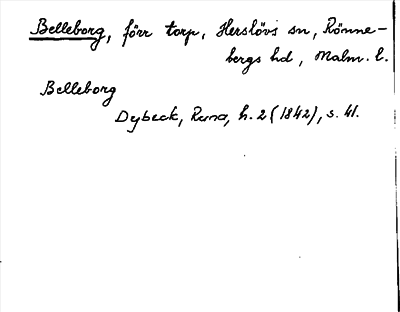 Belleborg, förr torp, Herslövs sn, Rönne-
bergs hd, Malm. l.
Belleborg
Dybeck, Runa, h. 2 (1842), s. 41.